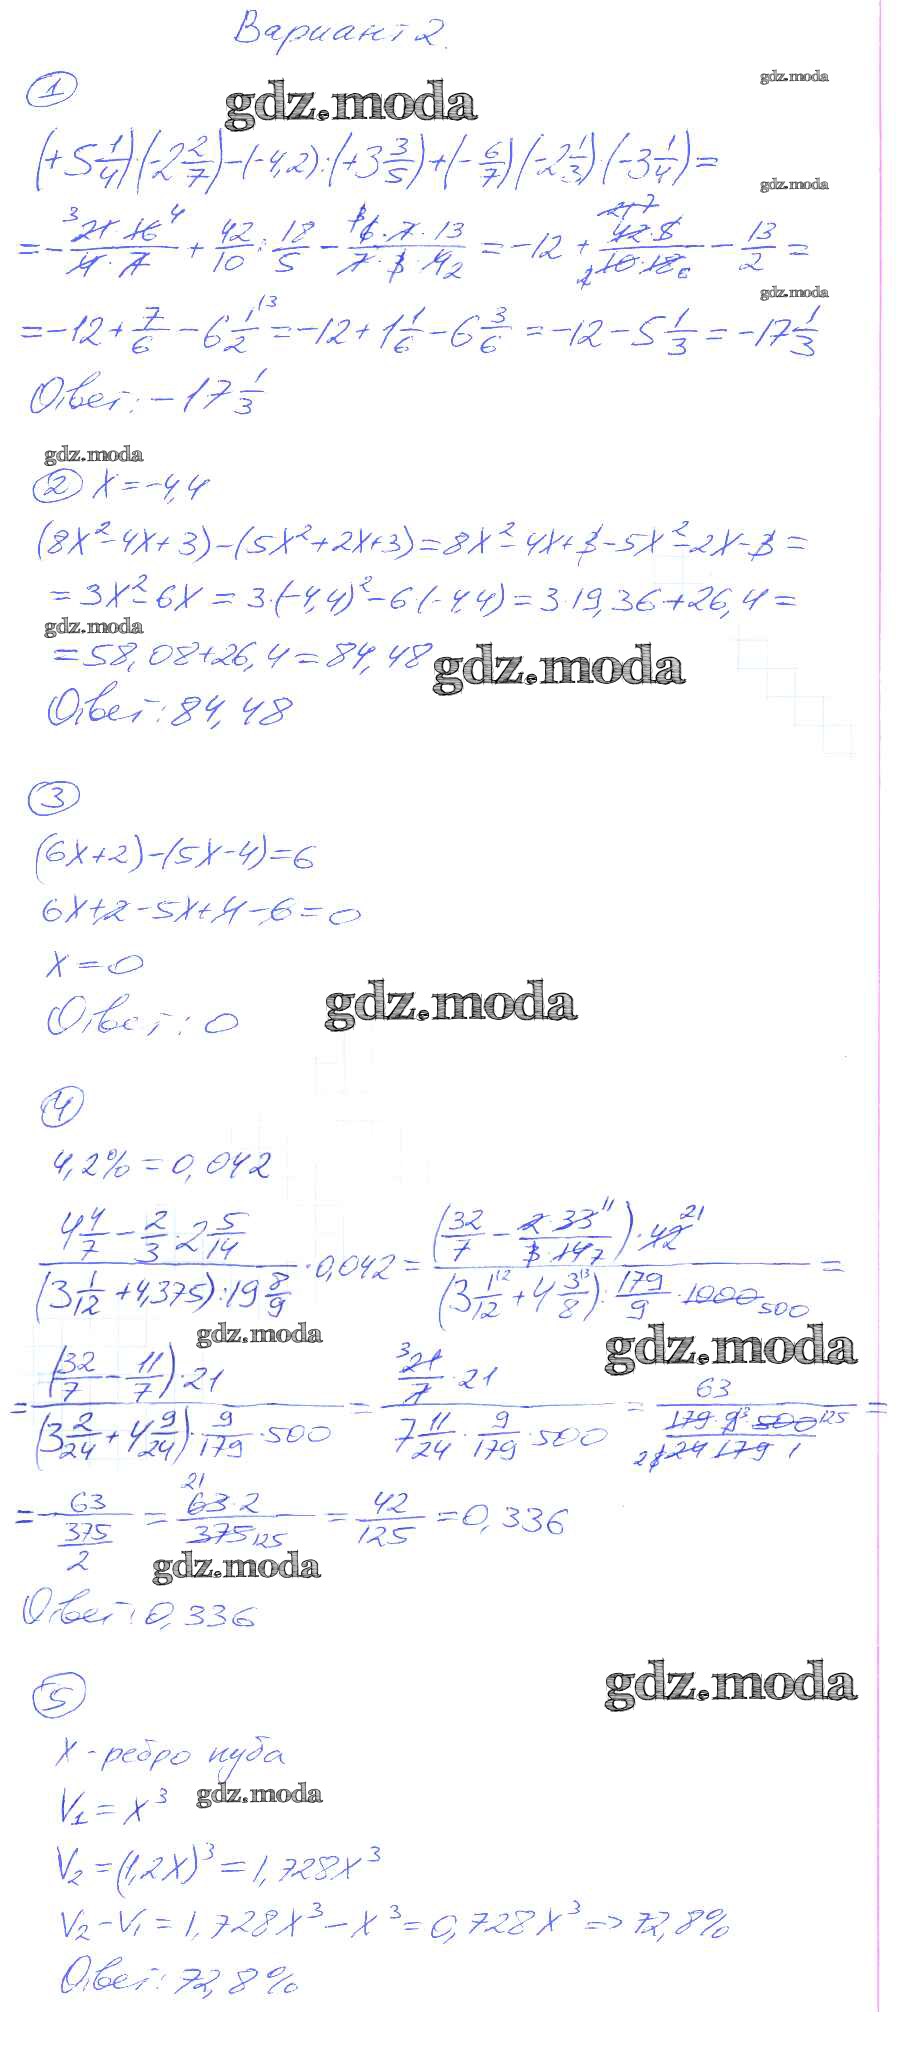 Вариант 2.
1
gdz.moda
gdz.moda
(+5 1/4)·(-2 2/7)-(-4,2):(+3 3/5)+(-6/7)(-2 1/3)(-3 1/4)=
gdz.moda
=-(21·16)/(4·7) + 42/10 : 18/5 - (6·7·13)/(7·3·4) = -12 + (42·5)/(10·18) - 13/2 =
gdz.moda
=-12+7/6-6 1/2=-12+1 1/6-6 3/6=-12-5 1/3=-17 1/3
Ответ: -17 1/3
gdz.moda
2 x=-4,4
(8x²-4x+3)-(5x²+2x+3)=8x²-4x+3-5x²-2x-3=
=3x²-6x=3·(-4,4)²-6(-4,4)=3·19,36+26,4=
gdz.moda
=58,08+26,4=84,48
gdz.moda
Ответ: 84,48
3
(6x+2)-(5x-4)=6
6x+2-5x+4-6=0
x=0
gdz.moda
Ответ: 0
4
4,2%=0,042
(4 4/7 - 2/3·2 5/14)/((3 1/12+4,375):19 8/9)·0,042=((32/7 - (2·33)/(3·14))·42)/((3 1/12+4 3/8):179/9·1000)=
gdz.moda
gdz.moda
=((32/7-11/7)·21)/((3 2/24+4 9/24)·9/179·500)=(21/7·21)/(7 11/24·9/179·500)=63/((179·9·500)/(24·179·1))=
=63/(375/2)=(63·2)/375=42/125=0,336
gdz.moda
Ответ: 0,336
gdz.moda
5
x-ребро куба
gdz.moda
V₁=x³
V₂=(1,2x)³=1,728x³
V₂-V₁=1,728x³-x³=0,728x³=>72,8%
Ответ: 72,8%